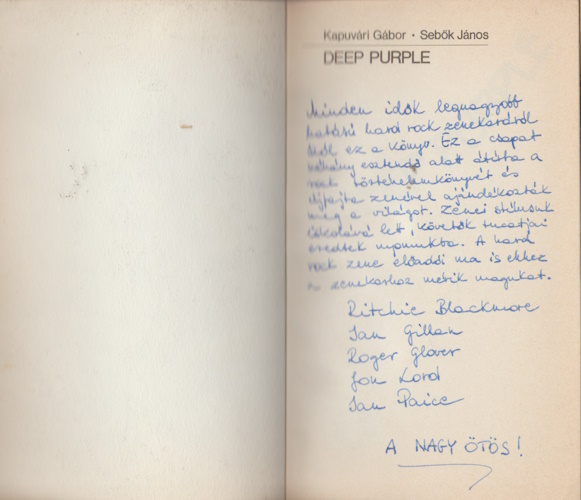 Kapuvári Gábor · Sebők János
DEEP PURPLE
Minden idők legnagyobb
hatású hard rock zenekaráról
szól ez a könyv. Ez a csapat
néhány esztendő alatt átírta a
rock történelemkönyvét és
újfajta zenével ajándékozták
meg a világot. Zenei stílusuk
iskolává lett, követők tucatjai
eredtek nyomukba. A hard
rock zene előadói ma is ehhez
a zenekarhoz mérik magukat.
Ritchie Blackmore
Ian Gillan
Roger Glover
Jon Lord
Ian Paice
A NAGY ÖTÖS!